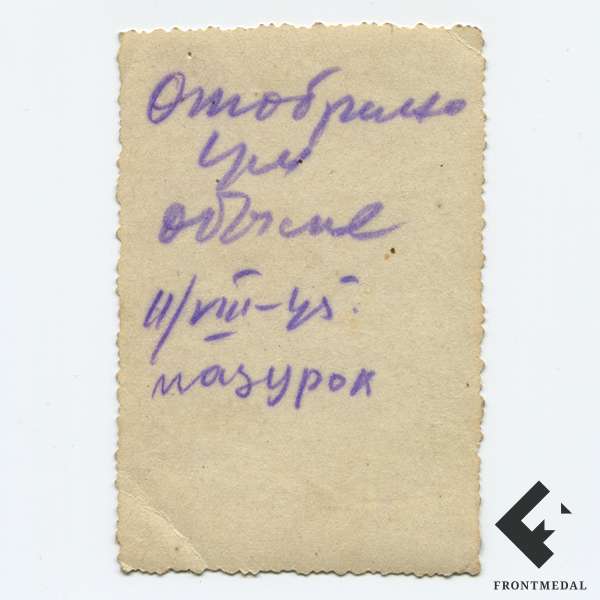 Отобрано
при
обыске
11/VIII-45.
мазурок
FRONTMEDAL